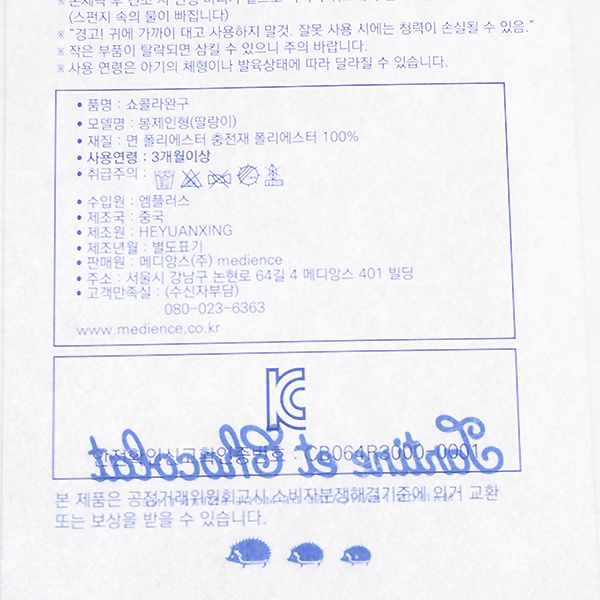 (스펀지 속의 물이 빠집니다)
※ "경고! 귀에 가까이 대고 사용하지 말것. 잘못 사용 시에는 청력이 손실될 수 있음."
※ 작은 부품이 탈락되면 삼킬 수 있으니 주의 바랍니다.
※ 사용 연령은 아기의 체형이나 발육상태에 따라 달라질 수 있습니다.
• 품명 : 쇼콜라완구
• 모델명 : 봉제인형(딸랑이)
• 재질 : 면 폴리에스터 충전재 폴리에스터 100%
• 사용연령 : 3개월이상
• 취급주의 :
• 수입원 : 엠플러스
• 제조국 : 중국
• 제조원 : HEYUANXING
• 제조년월 : 별도표기
• 판매원 : 메디앙스(주) medience
• 주소 : 서울시 강남구 논현로 64길 4 메디앙스 401 빌딩
• 고객만족실 : (수신자부담)
080-023-6363
www.medience.co.kr
안전확인신고확인증번호 : CB064R3000-0001
Tartine et Chocolat
본 제품은 공정거래위원회고시 소비자분쟁해결기준에 의거 교환
또는 보상을 받을 수 있습니다.